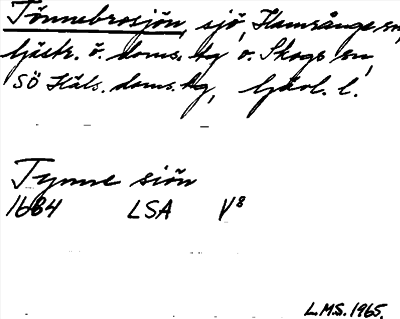 Tönnebrosjön, sjö, Hamrånge sn,
Gästr. ö. doms. hg o. Skogs sn,
SÖ Häls. doms. hg, Gävl. l.
Tynne siön
1684 LSA V⁸
L.M.S. 1965.